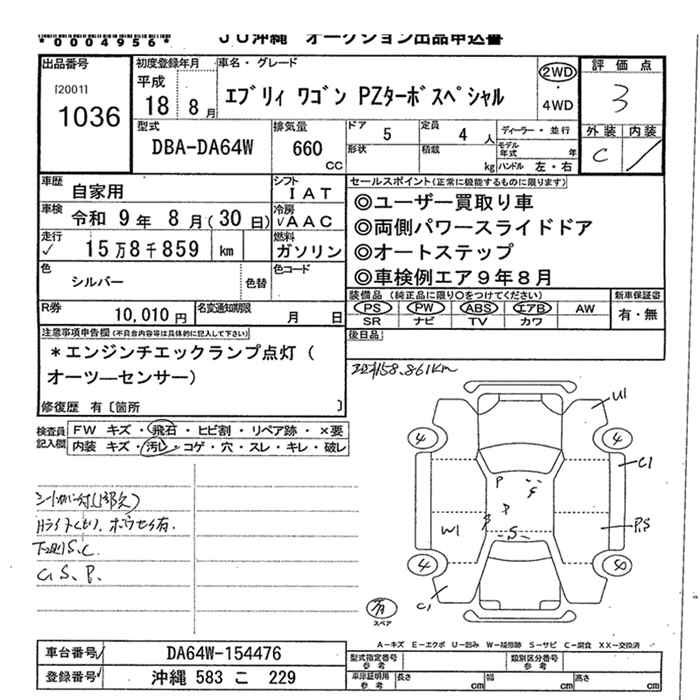 *0004956*
JU沖縄 オークション出品申込書
出品番号 初度登録年月 車名・グレード 評価点
[2001] 1036
平成 18 8月
エブリィ ワゴン PZターボスペシャル
2WD 4WD
3
外装 内装
C /
型式 DBA-DA64W
排気量 660 CC
ドア 5 定員 4 人
形状 積載 kg
ディーラー・並行
モデル年式 年
ハンドル 左・右
車歴 自家用
シフト IAT
車検 令和 9年 8月(30日)
冷房 √AAC
走行 ✓ 15万8千859 km
燃料 ガソリン
色 シルバー 色替
色コード
R券 10,010円
名変通知期限 月 日
セールスポイント(正常に機能するものに限ります)
◎ユーザー買取り車
◎両側パワースライドドア
◎オートステップ
◎車検例エア9年8月
装備品(純正品に限り○をつけてください) 新車保証書
PS PW ABS エアB AW 有・無
SR ナビ TV カワ
後日品
注意事項申告欄(不具合内容等は具体的に記入して下さい)
*エンジンチエックランプ点灯(
オーツ―センサー)
修復歴 有〔箇所 〕
検査員記入欄
FW キズ・飛石・ヒビ割・リペア跡・×要
内装 キズ・汚レ・コゲ・穴・スレ・キレ・破レ
158,861km
U1
4 4
C1
P
P
W1
S
P.S
4 4
C1
有
スペア
下廻りS.C.
G.S.P.
A-キズ E-エクボ U-凹み W-補修跡 S-サビ C-腐食 XX-交換済
車台番号 DA64W-154476
登録番号 沖縄 583 こ 229
型式指定番号 参考
類別区分番号 参考
車庫証明用 参考 長さ cm 幅 cm 高さ cm